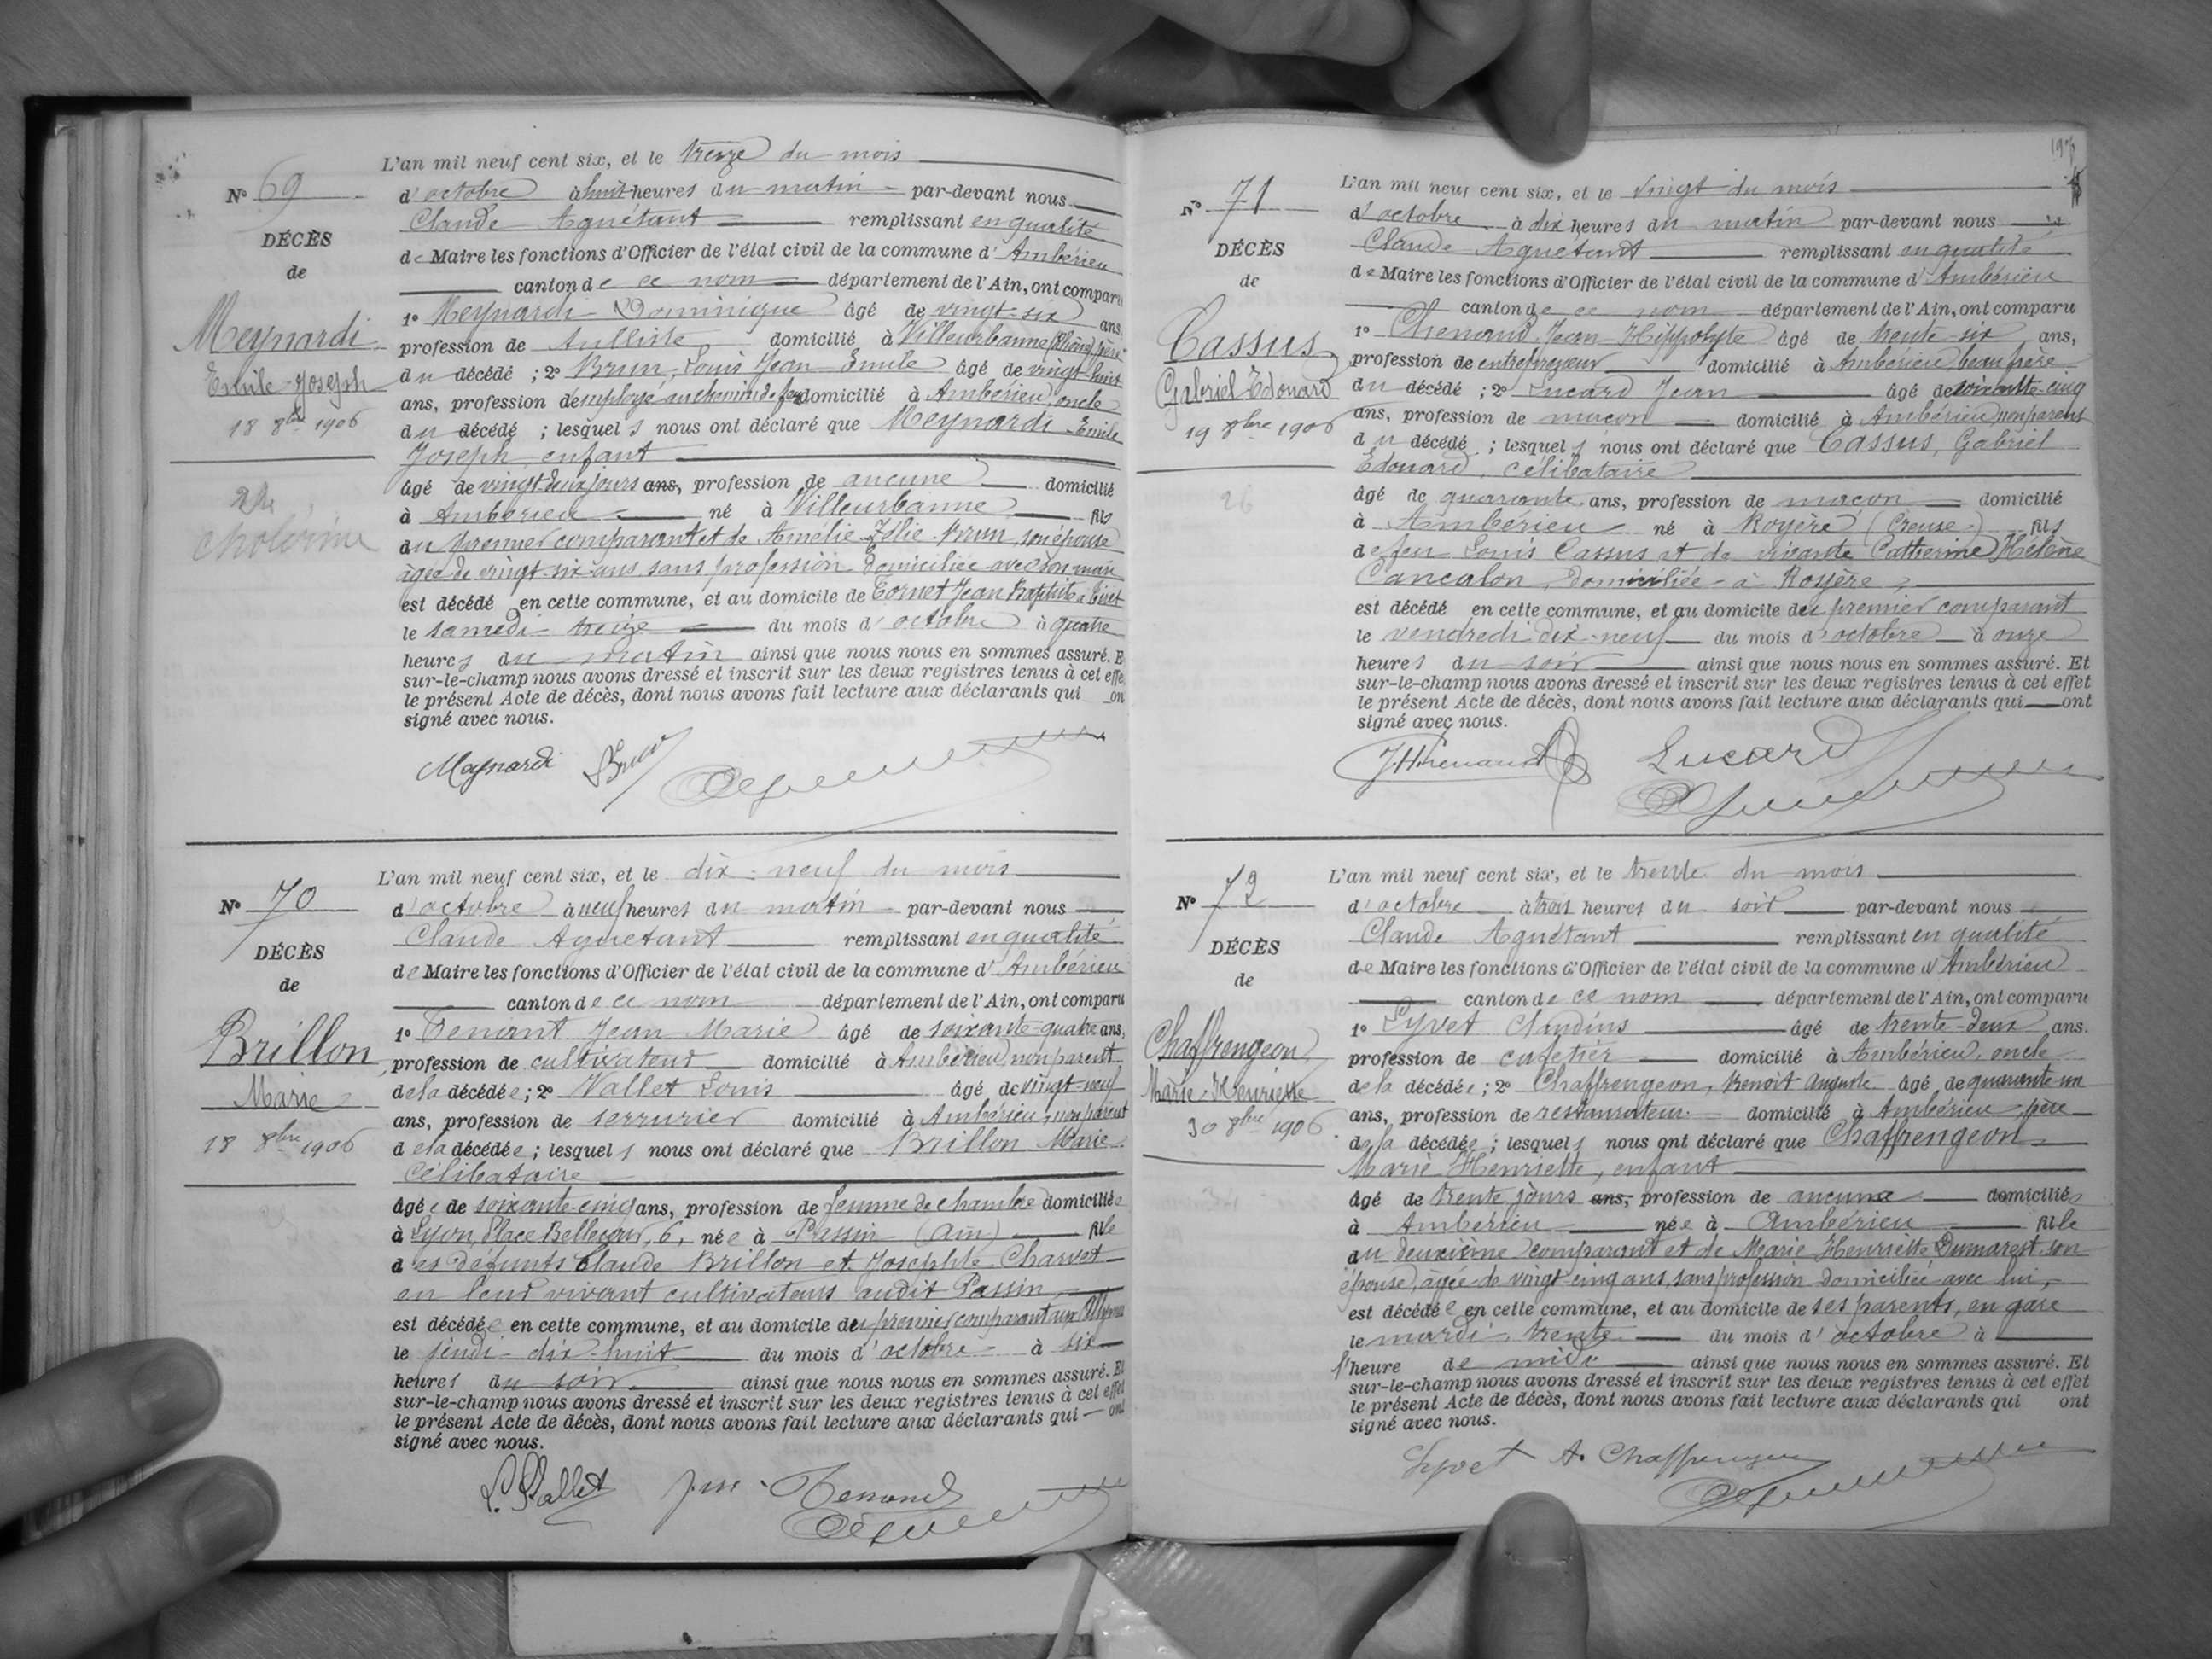 L'an mil neuf cent six, et le treize du mois
N° 69
d'octobre à huit heures du matin par-devant nous
Claude Aguétant remplissant en qualité
DÉCÈS
de Maire les fonctions d'Officier de l'état civil de la commune d'Ambérieu
de
canton de ce nom département de l'Ain, ont comparu
Meynardi
Emile-Joseph
18 8bre 1906
1° Meynardi Dominique âgé de vingt-six ans,
profession de tulliste domicilié à Villeurbanne (Rhône) père
du décédé ; 2° Brun, Louis Jean Emile âgé de vingt-huit
ans, profession d'employé au chemin de fer domicilié à Ambérieu, oncle
du décédé ; lesquels nous ont déclaré que Meynardi Emile
Joseph enfant
âgé de vingt-deux jours ans, profession de aucune domicilié
à Ambérieu né à Villeurbanne fils
du premier comparant et de Amélie Zélie Brun, son épouse
âgée de vingt-six ans sans profession domiciliée avec son mari
est décédé en cette commune, et au domicile de Cornet Jean Baptiste à
le samedi treize du mois d'octobre à quatre
heures du matin ainsi que nous nous en sommes assuré. E
sur-le-champ nous avons dressé et inscrit sur les deux registres tenus à cet effe
le présent Acte de décès, dont nous avons fait lecture aux déclarants qui on
signé avec nous.
Maynardi
L'an mil neuf cent six, et le dix-neuf du mois
N° 70
d'octobre à neuf heures du matin par-devant nous
Claude Aguétant remplissant en qualité
DÉCÈS
de Maire les fonctions d'Officier de l'état civil de la commune d'Ambérieu
de
canton de ce nom département de l'Ain, ont comparu
Brillon
Marie
18 8bre 1906
1° Tenant Jean Marie âgé de soixante-quatre ans,
profession de cultivateur domicilié à Ambérieu, non parent
de la décédée ; 2° Vallet Louis âgé de vingt-neuf
ans, profession de serrurier domicilié à Ambérieu, non parent
de la décédée ; lesquels nous ont déclaré que Brillon Marie
célibataire
âgée de soixante-cinq ans, profession de femme de chambre domiciliée
à Lyon, Place Bellecour, 6, née à Passin (Ain) fille
des défunts Claude Brillon et Josephte Charvet
en leur vivant cultivateurs audit Passin,
est décédée en cette commune, et au domicile du premier comparant
le jeudi dix-huit du mois d'octobre à six
heures du soir ainsi que nous nous en sommes assuré. Et
sur-le-champ nous avons dressé et inscrit sur les deux registres tenus à cet effet
le présent Acte de décès, dont nous avons fait lecture aux déclarants qui ont
signé avec nous.
L. Vallet
L'an mil neuf cent six, et le vingt du mois
N° 71
d'octobre à dix heures du matin par-devant nous
Claude Aguétant remplissant en qualité
DÉCÈS
de Maire les fonctions d'Officier de l'état civil de la commune d'Ambérieu
de
canton de ce nom département de l'Ain, ont comparu
Cassus
Gabriel Edouard
19 8bre 1906
26
1° Chenaud Jean Hippolyte âgé de trente-six ans,
profession de entrepreneur domicilié à Ambérieu beau frère
du décédé ; 2° Lucard Jean âgé de soixante-cinq
ans, profession de maçon domicilié à Ambérieu, non parent
du décédé ; lesquels nous ont déclaré que Cassus, Gabriel
Edouard, célibataire
âgé de quarante ans, profession de maçon domicilié
à Ambérieu né à Royère (Creuse) fils
de feu Louis Cassus et de vivante Catherine Hélène
Cancalon, domiciliée à Royère,
est décédé en cette commune, et au domicile du premier comparant
le vendredi dix-neuf du mois d'octobre à onze
heures du soir ainsi que nous nous en sommes assuré. Et
sur-le-champ nous avons dressé et inscrit sur les deux registres tenus à cet effet
le présent Acte de décès, dont nous avons fait lecture aux déclarants qui ont
signé avec nous.
Lucard
L'an mil neuf cent six, et le trente du mois
N° 72
d'octobre à trois heures du soir par-devant nous
Claude Aguétant remplissant en qualité
DÉCÈS
de Maire les fonctions d'Officier de l'état civil de la commune d'Ambérieu
de
canton de ce nom département de l'Ain, ont comparu
Chaffrengeon
Marie-Henriette
30 8bre 1906
1° Lyvet Claudius âgé de trente-deux ans.
profession de cafetier domicilié à Ambérieu, oncle
de la décédée ; 2° Chaffrengeon, Benoit Auguste âgé de quarante un
ans, profession de restaurateur domicilié à Ambérieu père
de la décédée ; lesquels nous ont déclaré que Chaffrengeon
Marie Henriette, enfant
âgé de trente jours ans, profession de aucune domiciliée
à Ambérieu née à Ambérieu fille
du deuxième comparant et de Marie Henriette Dumarest son
épouse, âgée de vingt cinq ans, sans profession domiciliée avec lui,
est décédée en cette commune, et au domicile de ses parents, en gare
le mardi trente du mois d'octobre à
l'heure de midi ainsi que nous nous en sommes assuré. Et
sur-le-champ nous avons dressé et inscrit sur les deux registres tenus à cet effet
le présent Acte de décès, dont nous avons fait lecture aux déclarants qui ont
signé avec nous.
Lyvet A. Chaffrengeon